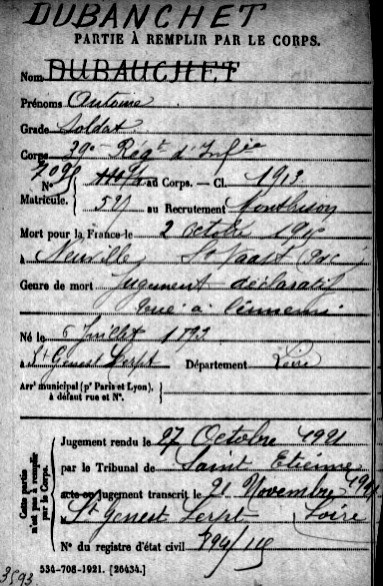 DUBANCHET
PARTIE À REMPLIR PAR LE CORPS.
Nom DUBAUCHET
Prénoms Antoine
Grade Soldat
Corps 39e Régt d'Infie
No au Corps. — Cl. 1913
Matricule. 521 au Recrutement Montbrison
Mort pour la France le 2 Octobre 1915
à Neuville St Vaast
Genre de mort Jugement déclaratif
tué à l'ennemi
Né le Juillet 1893
à St Genest Lerpt Département Loire
Arrt municipal (pr Paris et Lyon),
à défaut rue et No.
Cette partie
n'est pas à remplir
par le Corps.
Jugement rendu le 27 Octobre 1921
par le Tribunal de Saint Etienne
acte ou jugement transcrit le 21 Novembre 1921
St Genest Lerpt Loire
No du registre d'état civil 894/115
534-708-1921. [26434.]
3593